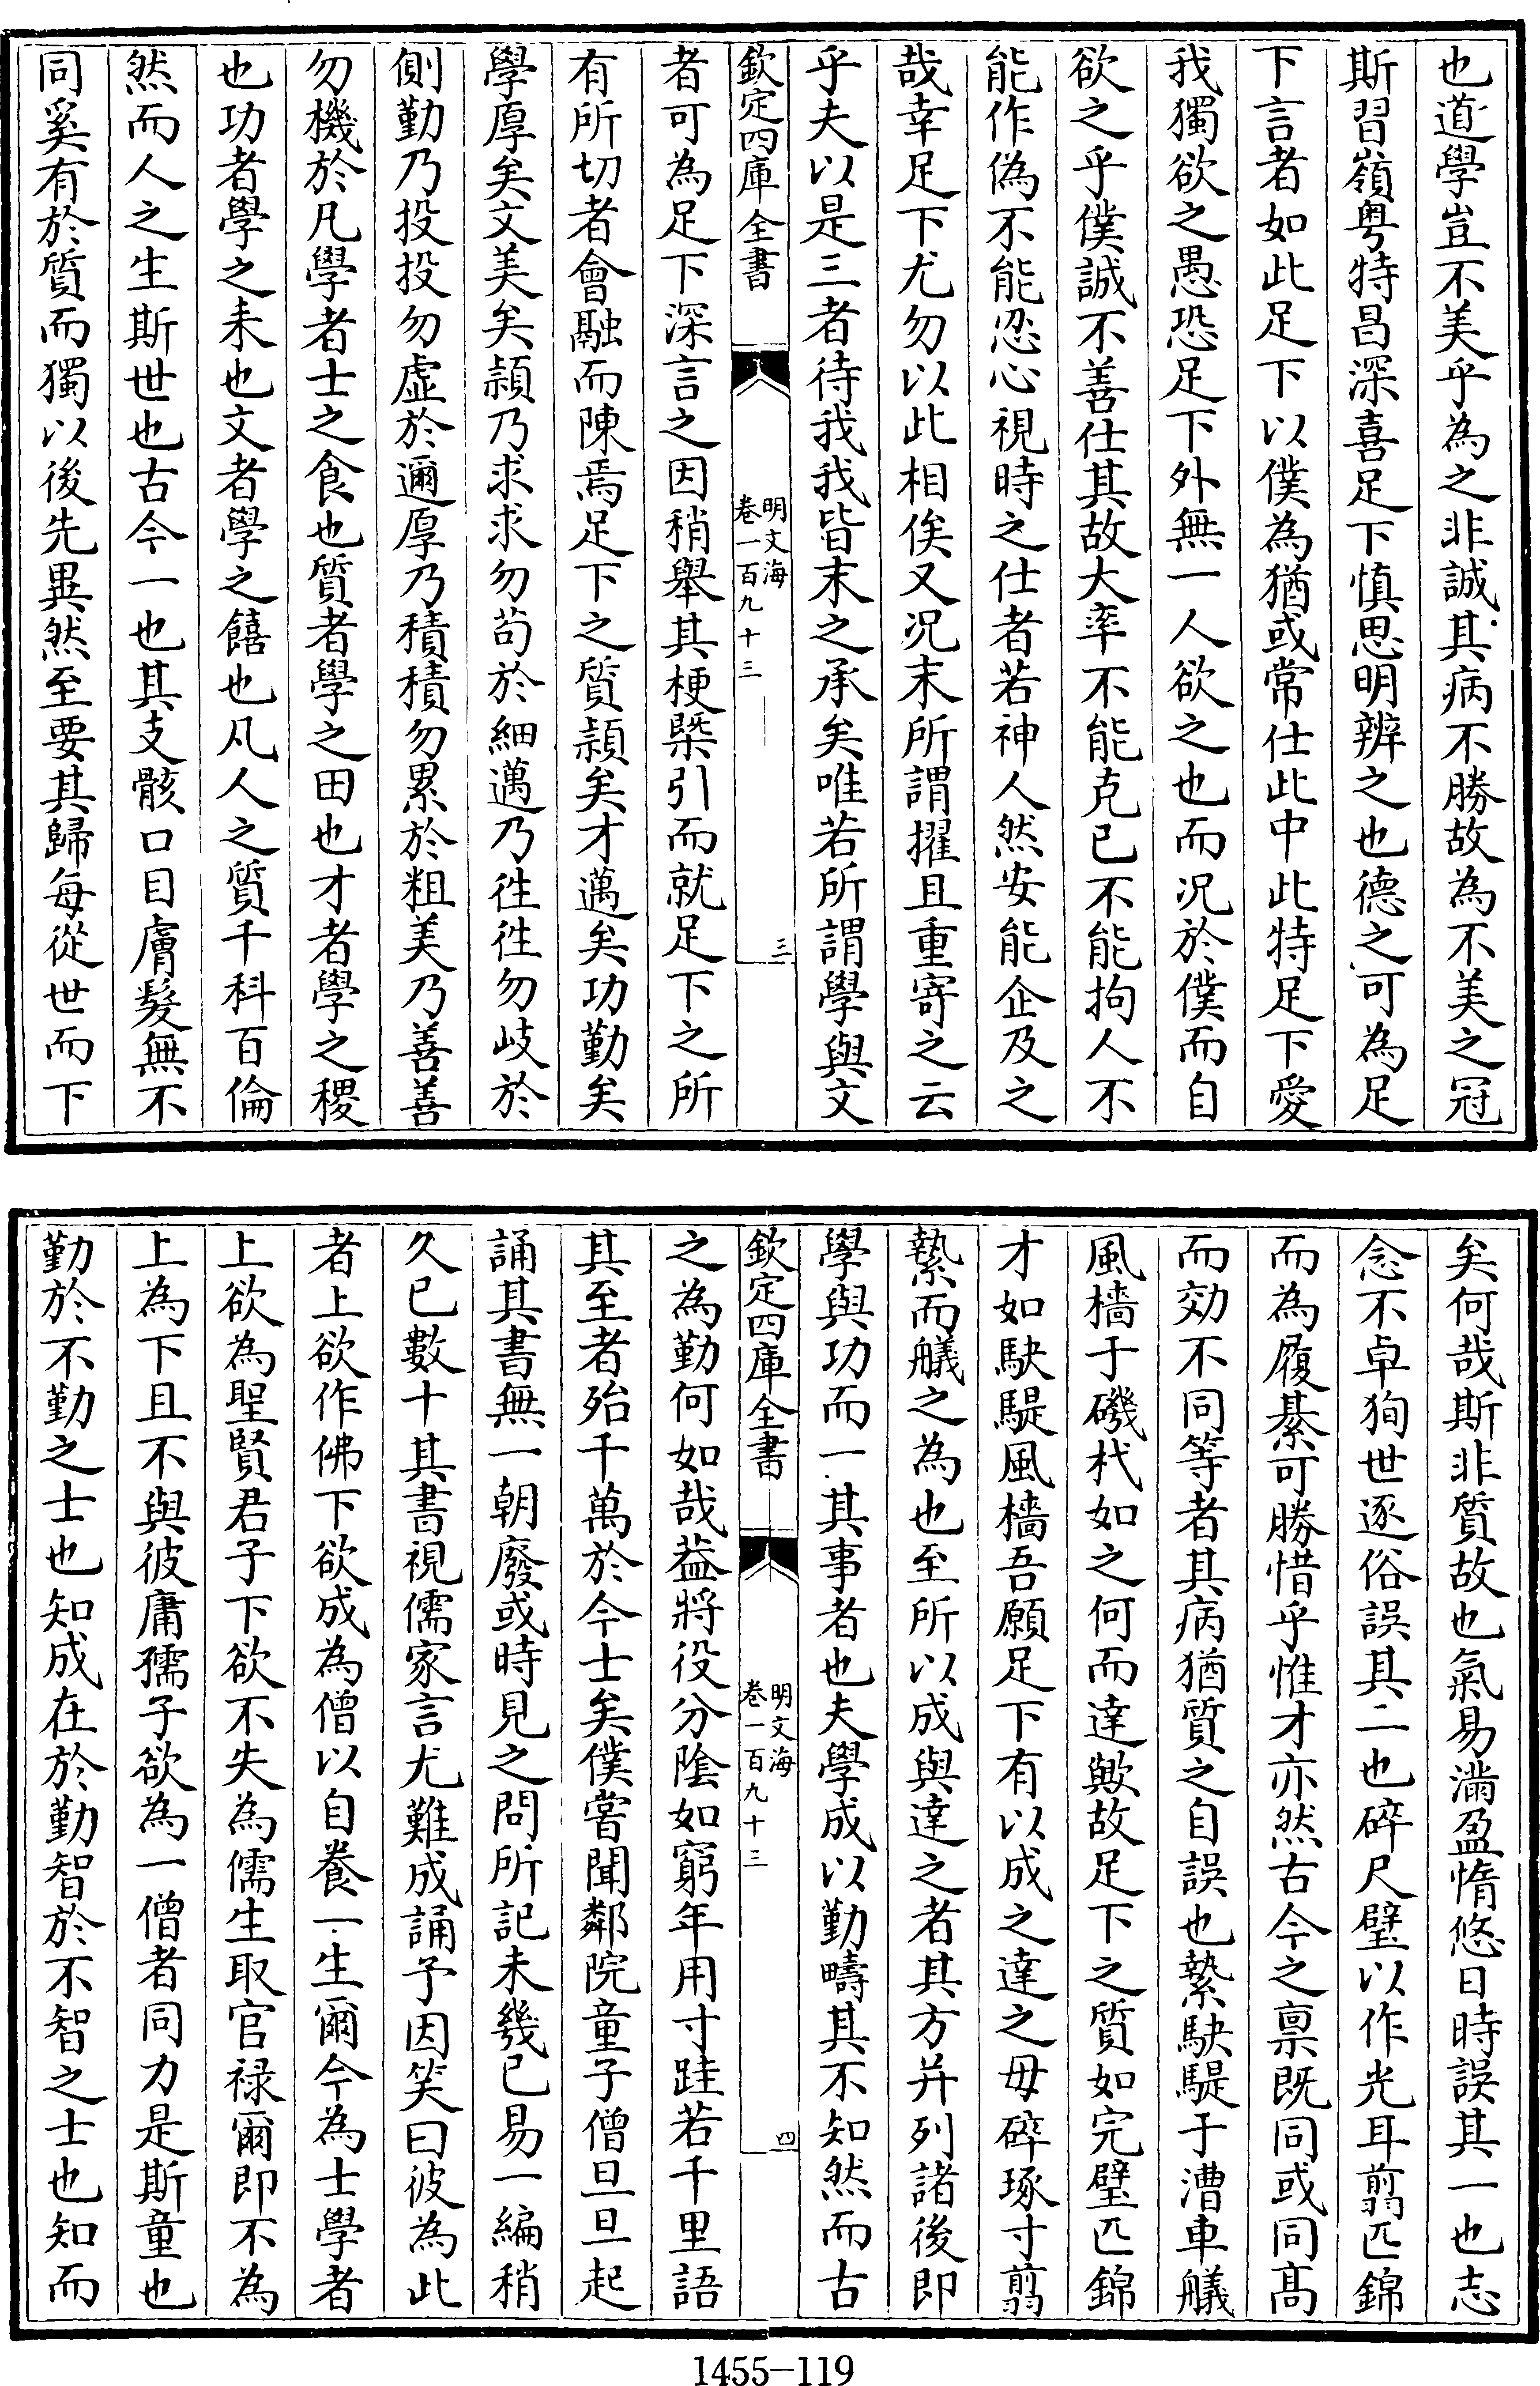 也道學豈不美乎為之非誠其病不勝故為不美之冠
斯習嶺粤特昌深喜足下慎思明辨之也德之可為足
下言者如此足下以僕為猶或常仕此中此特足下愛
我獨欲之愚恐足下外無一人欲之也而况於僕而自
欲之乎僕誠不善仕其故大率不能克已不能拘人不
能作偽不能忍心視時之仕者若神人然安能企及之
哉幸足下尤勿以此相俟又况末所謂擢且重寄之云
乎夫以是三者待我我皆末之承矣唯若所謂學與文
欽定四庫全書
明文海
卷一百九十三
三
者可為足下深言之因稍舉其梗槩引而就足下之所
有所切者會融而陳焉足下之質頴矣才邁矣功勤矣
學厚矣文美矣頴乃求求勿苟於細邁乃徃徃勿岐於
側勤乃投投勿虚於邇厚乃積積勿累於粗美乃善善
勿機於凡學者士之食也質者學之田也才者學之稷
也功者學之耒也文者學之饎也凡人之質千科百倫
然而人之生斯世也古今一也其支骸口目膚髮無不
同奚有於質而獨以後先異然至要其歸每從世而下
矣何哉斯非質故也氣易滿盈惰悠日時誤其一也志
念不卓狥世逐俗誤其二也碎尺璧以作光耳翦匹錦
而為履綦可勝惜乎惟才亦然古今之禀既同或同髙
而効不同等者其病猶質之自誤也縶駃騠于漕車艤
風檣于磯杙如之何而達歟故足下之質如完璧匹錦
才如駃騠風檣吾願足下有以成之達之毋碎琢寸翦
縶而艤之為也至所以成與達之者其方并列諸後即
學與功而一其事者也夫學成以勤疇其不知然而古
欽定四庫全書
明文海
卷一百九十三
四
之為勤何如哉葢將役分陰如窮年用寸跬若千里語
其至者殆千萬於今士矣僕嘗聞鄰院童子僧旦旦起
誦其書無一朝廢或時見之問所記未幾已易一編稍
久已數十其書視儒家言尤難成誦予因笑曰彼為此
者上欲作佛下欲成為僧以自養一生爾今為士學者
上欲為聖賢君子下欲不失為儒生取官禄爾即不為
上為下且不與彼庸孺子欲為一僧者同力是斯童也
勤於不勤之士也知成在於勤智於不智之士也知而
1455-119